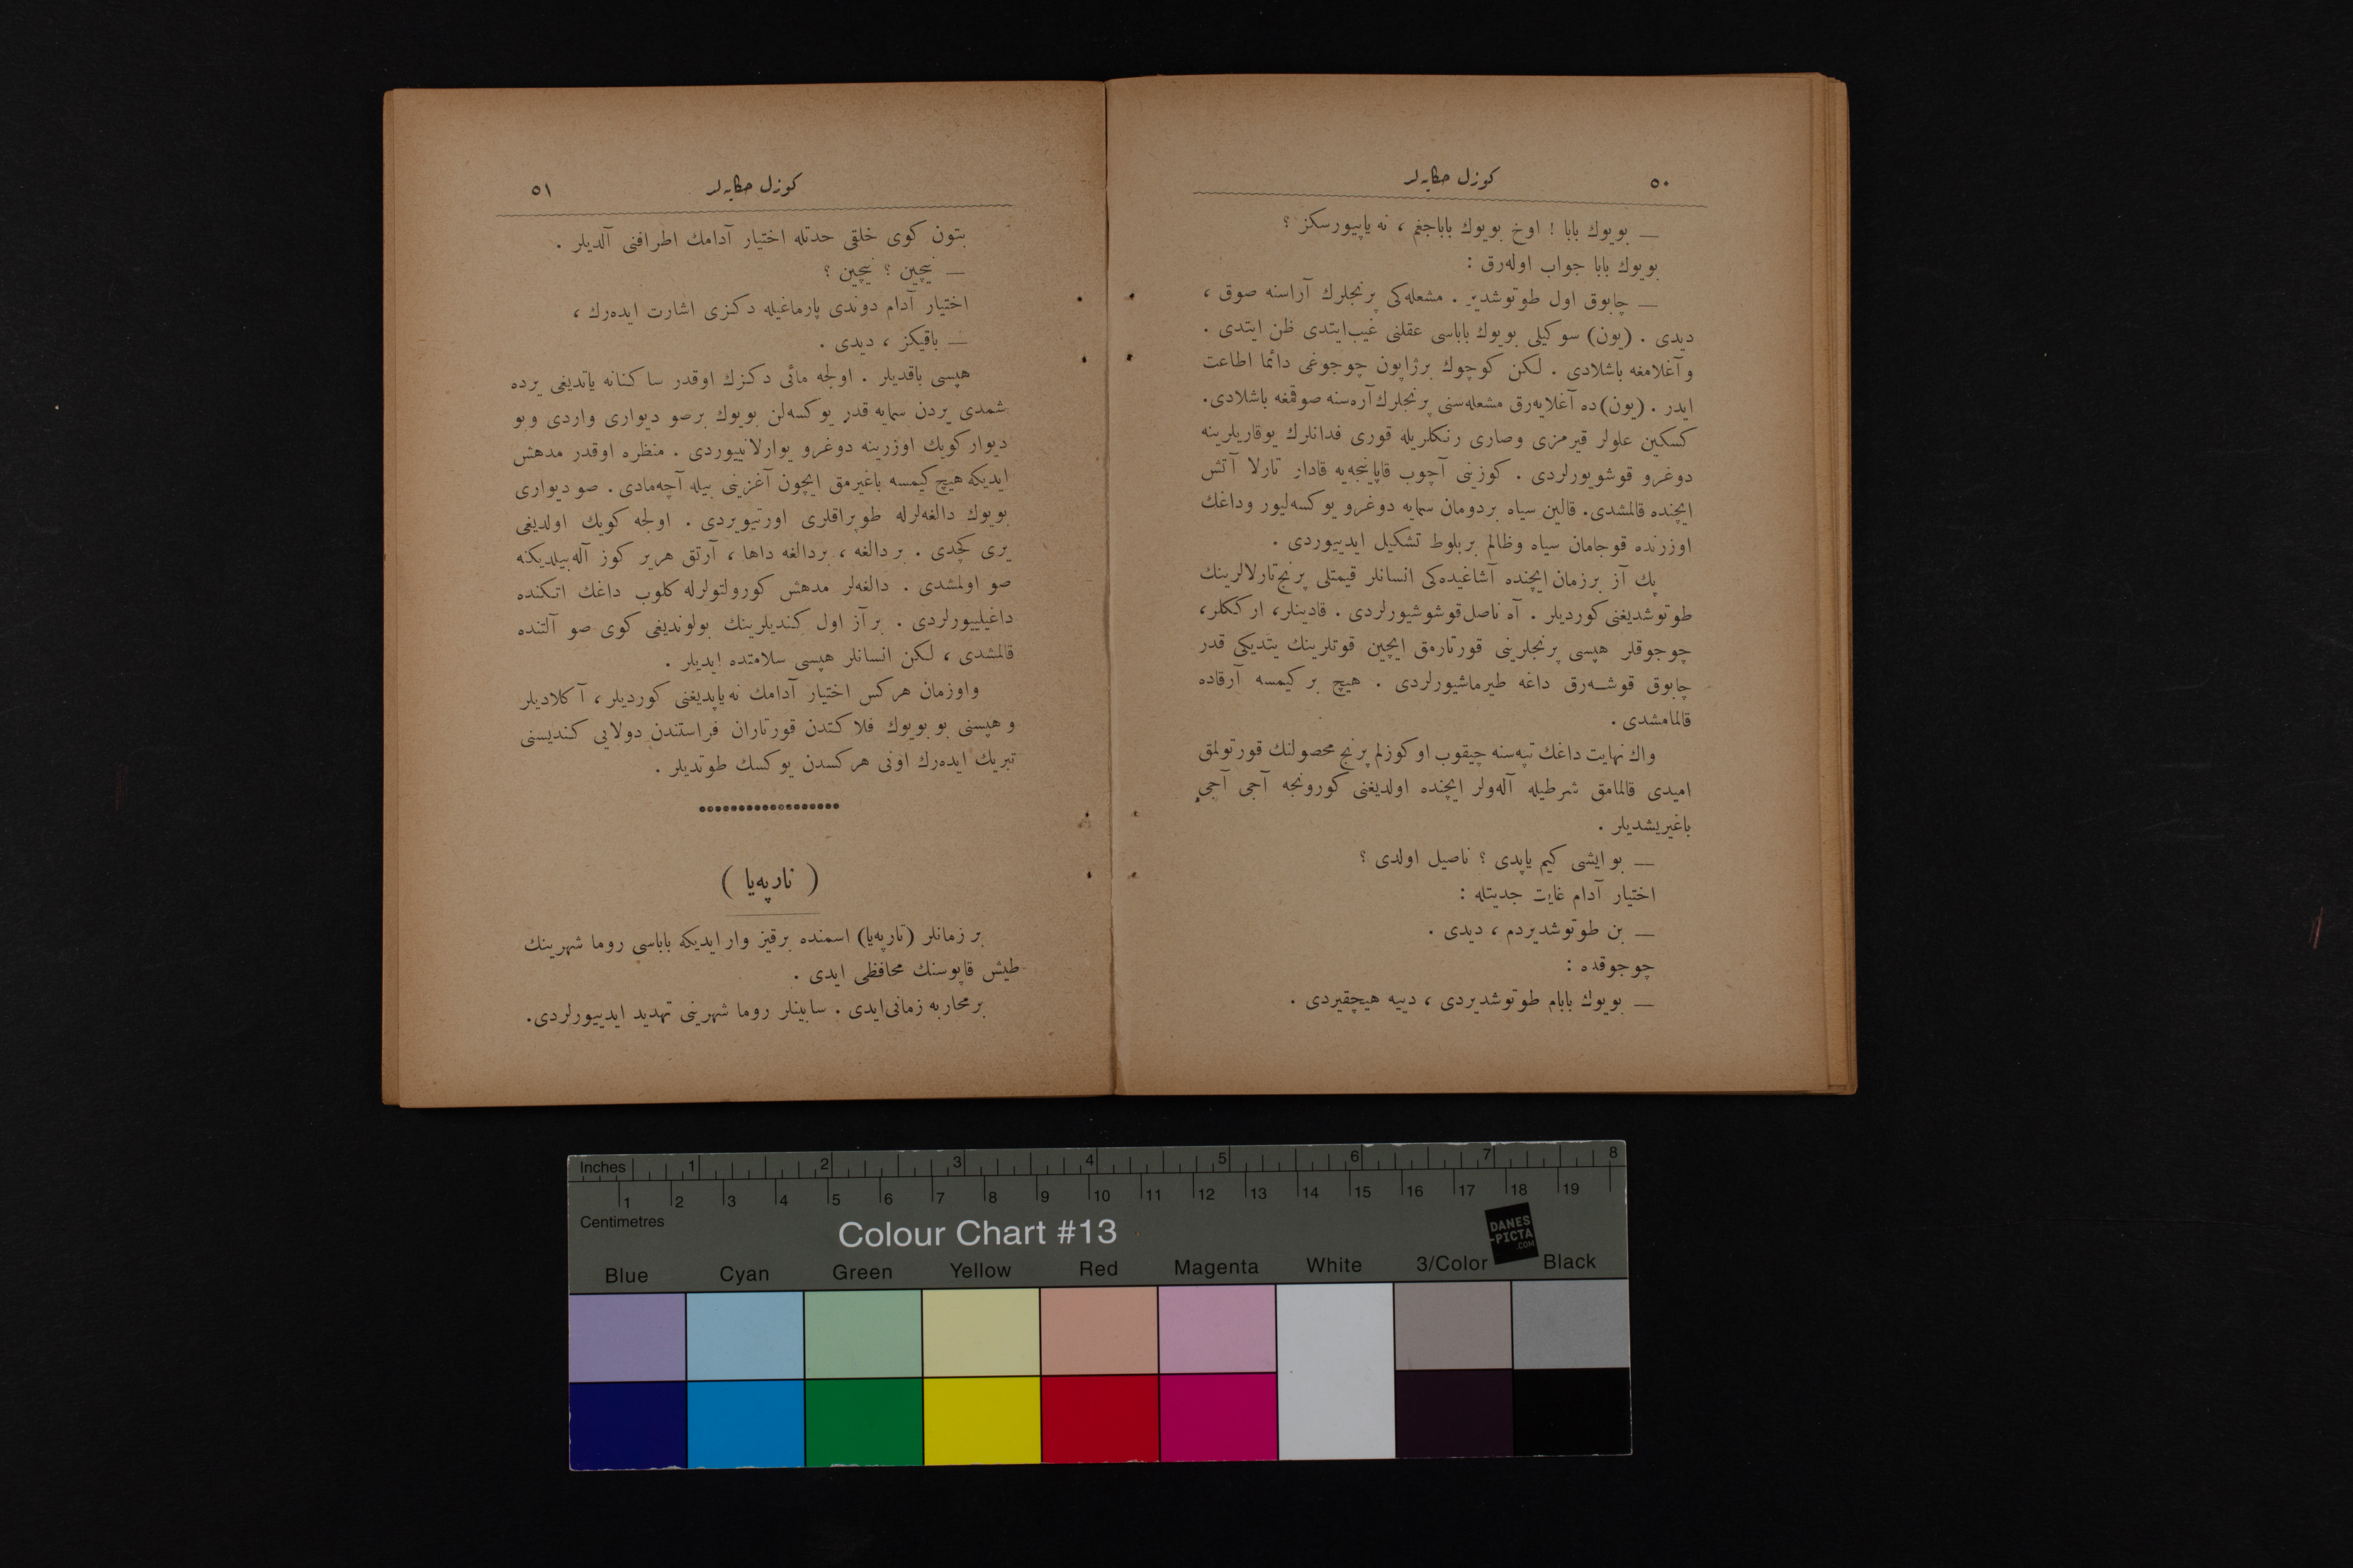 ٥٠
كوزل حكايه‌لر
— بويوك بابا ! اوخ بويوك باباجغم ، نه ياپيورسكز ؟
بويوك بابا جواب اوله‌رق :
— چابوق اول طوتوشدير . مشعله‌كى پرنجلرك آراسنه صوق ،
ديدى . (يون) سوكيلى بويوك باباسى عقلنى غيب‌ايتدى ظن ايتدى .
و آغلامغه باشلادى . لكن كوچوك برژاپون چوجوغى دائما اطاعت
ايدر . (يون) ده آغلايه‌رق مشعله‌سنى پرنجلرك آره‌سنه صوقمغه باشلادى.
كسكين علولر قيرمزى وصارى رنكلريله قورى فدانلرك يوقاريلرينه
دوغرو قوشويورلردى . كوزينى آچوب قاپاينجه‌يه قادار تارلا آتش
ايچنده قالمشدى. قالين سياه بردومان سمايه دوغرو يوكسه‌ليور وداغك
اوزرنده قوجامان سياه وظالم بربلوط تشكيل ايدييوردى .
پك آز برزمان ايچنده آشاغيده‌كى انسانلر قيمتلى پرنج تارلالرينك
طوتوشديغنى كورديلر . آه ناصل قوشوشيورلردى . قادينلر، ارككلر،
چوجوقلر هپسى پرنجلرينى قورتارمق ايچين قوتلرينك يتديكى قدر
چابوق قوشه‌رق داغه طيرماشيورلردى . هيچ بر كيمسه آرقاده
قالمامشدى .
واك نهايت داغك تپه‌سنه چيقوب او كوزلم پرنج محصولنك قورتولمق
اميدى قالمامق شرطيله آله‌ولر ايچنده اولديغنى كورونجه آجى آجى
باغيريشديلر .
— بو ايشى كيم ياپدى ؟ ناصيل اولدى ؟
اختيار آدام غايت جديتله :
— بن طوتوشديردم ، ديدى .
چوجوقده :
— بويوك بابام طوتوشديردى ، دييه هيچقيردى .
كوزل حكايه‌لر
٥١
بتون كوى خلقى حدتله اختيار آدامك اطرافنى آلديلر .
— نيچين ؟ نيچين ؟
اختيار آدام دوندى پارماغيله دكزى اشارت ايده‌رك ،
— باقيكز ، ديدى .
هپسى باقديلر . اولجه مائى دكزك اوقدر ساكنانه ياتديغى يرده
شمدى يردن سمايه قدر يوكسه‌لن بويوك برصو ديوارى واردى وبو
ديوار كويك اوزرينه دوغرو يوارلانييوردى . منظره اوقدر مدهش
ايديكه هيچ كيمسه باغيرمق ايچون آغزينى بيله آچه‌مادى . صو ديوارى
بويوك دالغه‌لرله طوپراقلرى اورتيويردى . اولجه كويك اولديغى
يرى كچدى . بر دالغه ، بردالغه داها ، آرتق هرير كوز آله‌بيلديكنه
صو اولمشدى . دالغه‌لر مدهش كورولتولرله كلوب داغك اتكنده
داغيلييورلردى . بر آز اول كنديلرينك بولونديغى كوى صو آلتنده
قالمشدى ، لكن انسانلر هپسى سلامتده ايديلر .
واوزمان هركس اختيار آدامك نه ياپديغنى كورديلر ، آكلاديلر
و هپسنى بو بويوك فلاكتدن قورتاران فراستندن دولايى كنديسنى
تبريك ايده‌رك اونى هركسدن يوكسك طوتديلر .
( تارپه‌يا )
بر زمانلر (تارپه‌يا) اسمنده برقيز وار ايديكه باباسى روما شهرينك
طيش قاپوسنك محافظى ايدى .
بر محاربه زمانى‌ايدى . سابينلر روما شهرينى تهديد ايدييورلردى.
Inches 1 2 3 4 5 6 7 8
1 2 3 4 5 6 7 8 9 10 11 12 13 14 15 16 17 18 19
Centimetres
Colour Chart #13
DANES
-PICTA
.COM
Blue Cyan Green Yellow Red Magenta White 3/Color Black